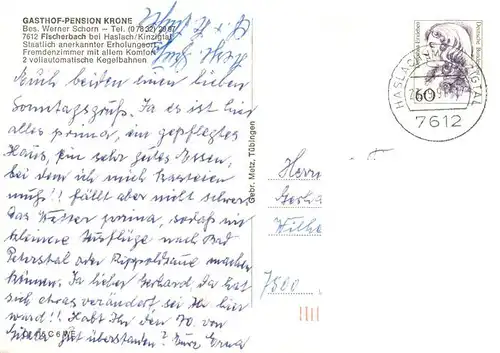 GASTHOF-PENSION KRONE
Bes. Werner Schorn – Tel. (07832) 2967
7612 Fischerbach bei Haslach/Kinzigtal
Staatlich anerkannter Erholungsort
Fremdenzimmer mit allem Komfort
2 vollautomatische Kegelbahnen
Euch beiden einen lieben
Sonntagsgruß. Ja es ist
alles prima, ein gepflegtes
Haus, ein sehr gutes Essen,
bei dem ich mich kasteien
muß!! fällt aber nicht schwer
Das Wetter prima, sodaß wir
kleinere Ausflüge nach Bad
Peterstal oder Rippoldsau machen
können. Ja lieber Gerhard, da hat
sich etwas verändert, seid Ihr hier
ward!! Habt Ihr den 70. von
gut überstanden? Eure Erna
Gebr. Metz, Tübingen
Deutsche Bundespost
60
HASLACH KINZIGTAL
7612
Herrn
Gerha
Wilhe
7500